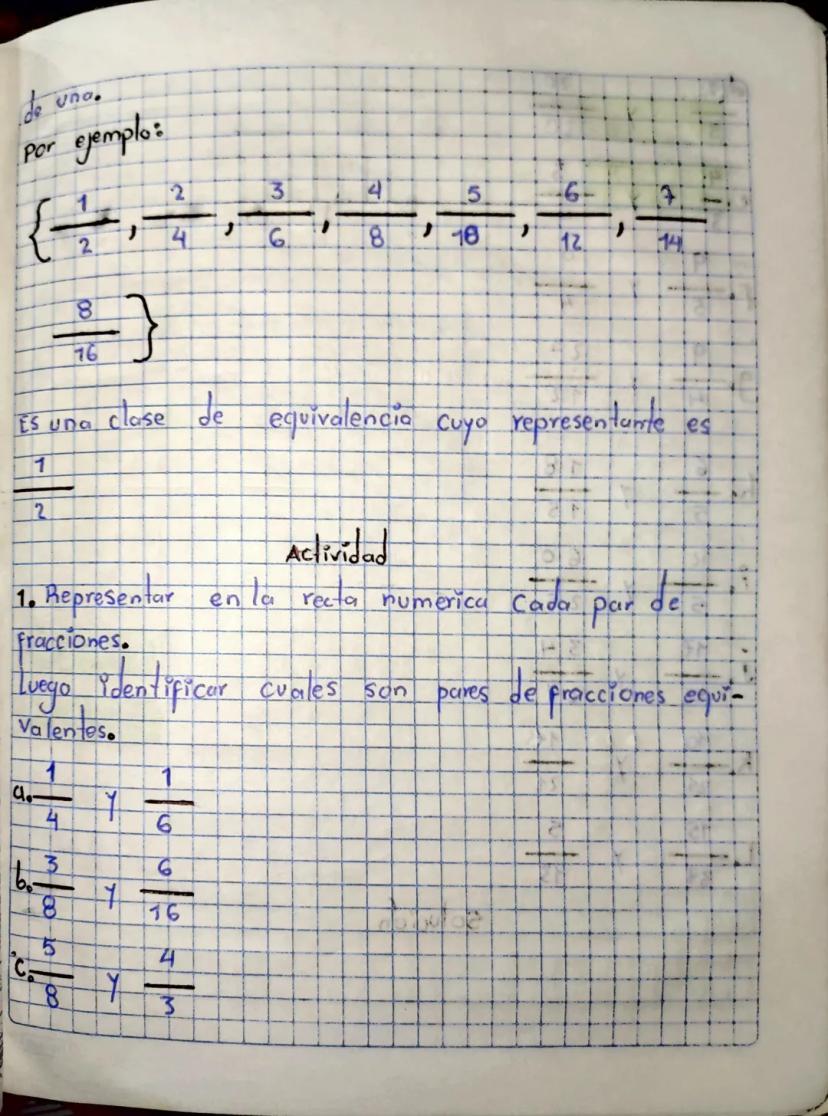 de una.
Por ejemplo:
{ 1/2 , 2/4 , 3/6 , 4/8 , 5/10 , 6/12 , 7/14
8/16 }
Es una clase de equivalencia cuyo representante es
1/2
Actividad
1. Representar en la recta numerica cada par de
fracciones.
Luego identificar cuales son pares de fracciones equi-
valentes.
a. 1/4 y 1/6
b. 3/8 y 6/16
c. 5/8 y 4/3